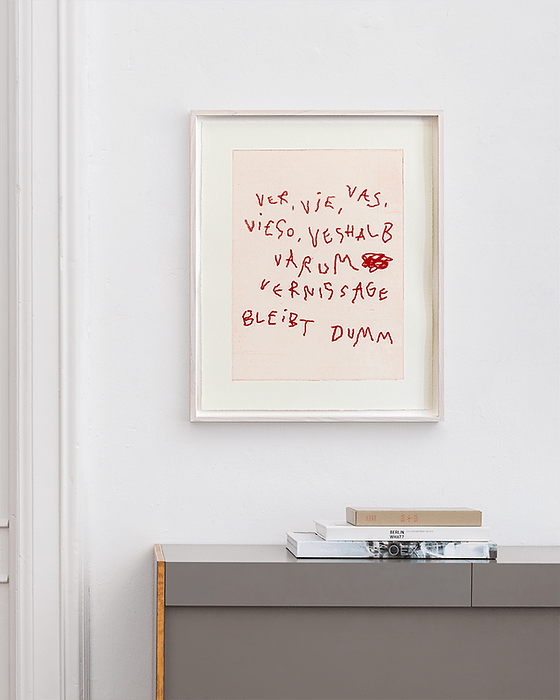 VER, VIE, VAS,
VIESO, VESHALB
VARUM
VERNISSAGE
BLEIBT DUMM
BERLIN
WHAT?